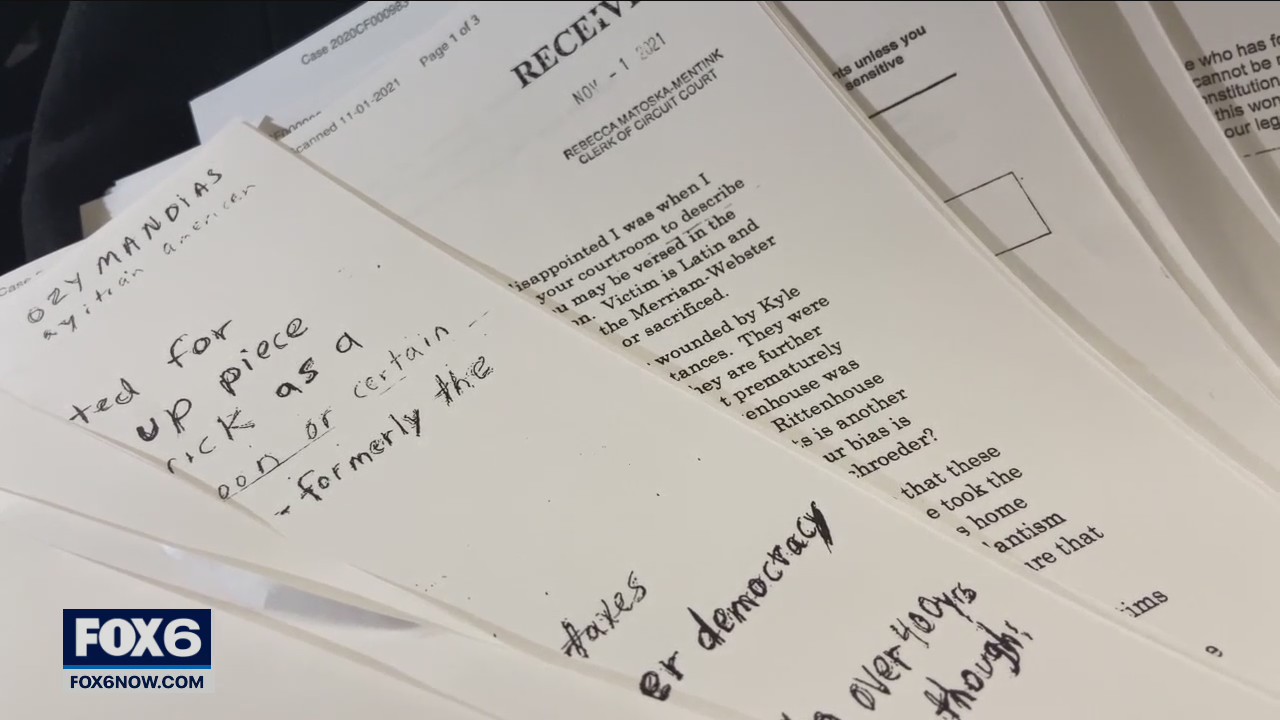 Case 2020CF000983
Page 1 of 3
Scanned 11-01-2021
RECEIV
NOV - 1 2021
REBECCA MATOSKA-MENTINK
CLERK OF CIRCUIT COURT
isappointed I was when I
your courtroom to describe
u may be versed in the
on. Victim is Latin and
the Merriam-Webster
or sacrificed.
wounded by Kyle
tances. They were
hey are further
t prematurely
enhouse was
Rittenhouse
ts is another
ur bias is
chroeder?
that these
e took the
s home
antism
ire that
ims
9
Case
OZY MANDIAS
ayitian american
ted for
up piece
rick as a
oon or certain
- formerly the
taxes
er democracy
over 400yrs
though
nts unless you
sensitive
e who has fo
cannot be r
onstitution
this wor
our leg
FOX6
FOX6NOW.COM